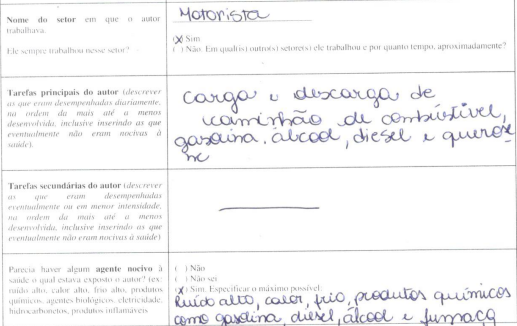 Nome do setor em que o autor trabalhava.
Ele sempre trabalhou nesse setor?
Motorista
(X) Sim
( ) Não. Em qual(is) outro(s) setor(es) ele trabalhou e por quanto tempo, aproximadamente?
Tarefas principais do autor (descrever
as que eram desempenhadas diariamente,
na ordem da mais até a menos
desenvolvida, inclusive inserindo as que
eventualmente não eram nocivas à
saúde).
carga e descarga de
caminhão de combustível,
gasolina, álcool, diesel e querose
ne
Tarefas secundárias do autor (descrever
as que eram desempenhadas
eventualmente ou em menor intensidade,
na ordem da mais até a menos
desenvolvida, inclusive inserindo as que
eventualmente não eram nocivas à saúde)
Parecia haver algum agente nocivo à
saúde o qual estava exposto o autor? (ex:
ruído alto, calor alto, frio alto, produtos
químicos, agentes biológicos, eletricidade,
hidrocarbonetos, produtos inflamáveis
( ) Não
( ) Não sei
(X) Sim. Especificar o máximo possível:
Ruído alto, calor, frio, produtos químicos
como gasolina, diesel, álcool e fumaça